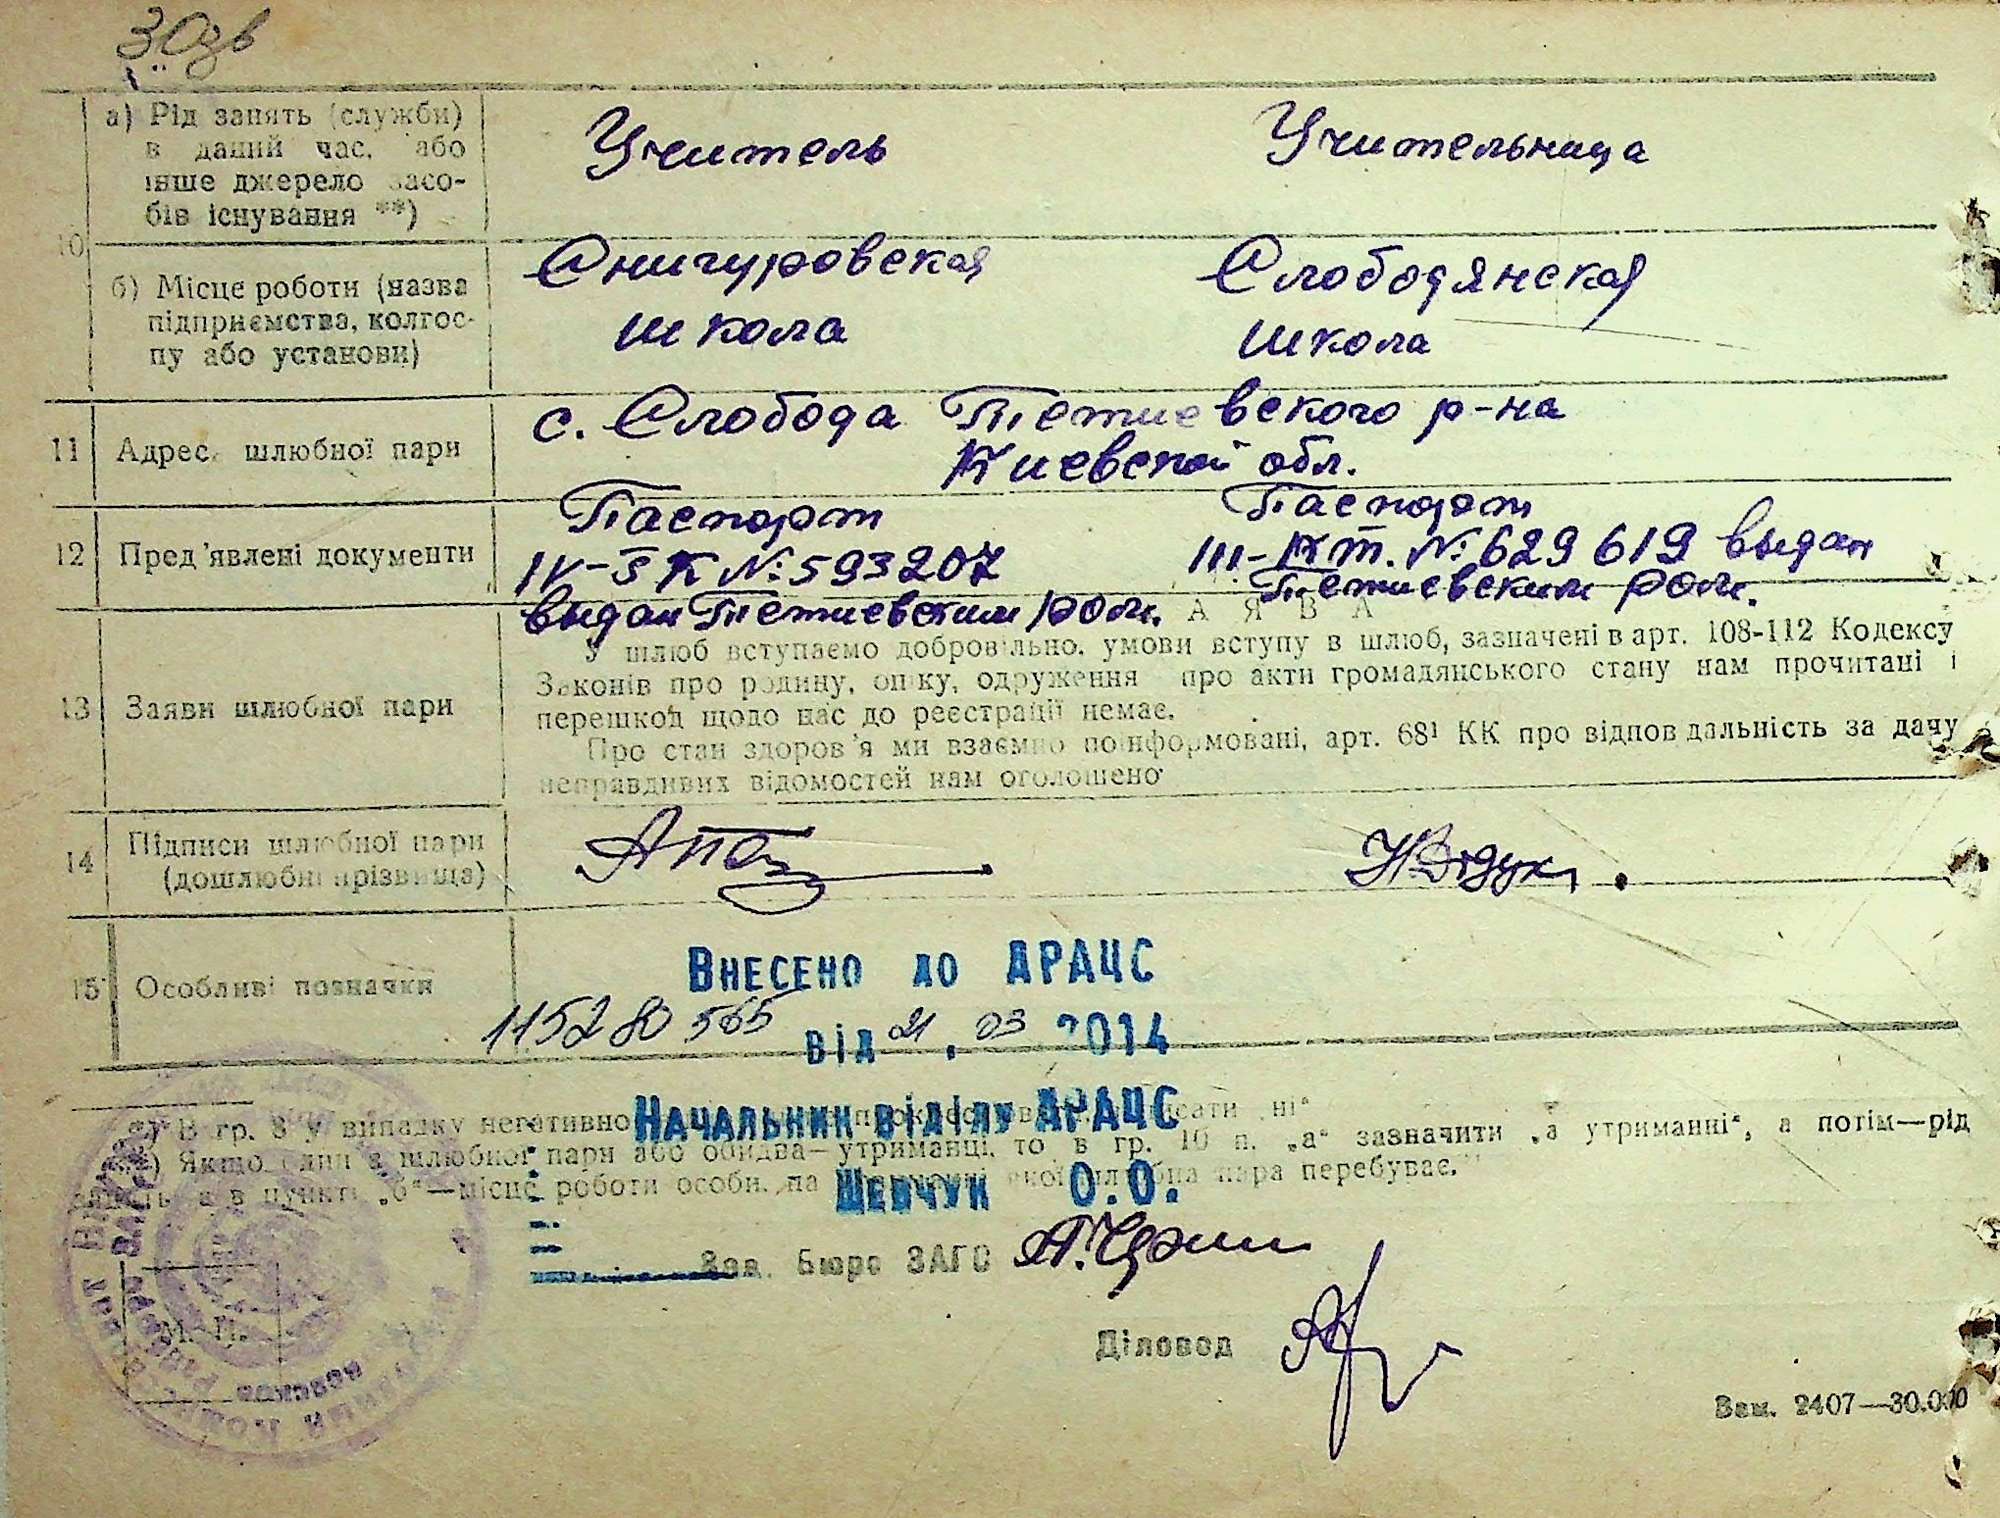 30зв
а) Рід занять (служби)
в даний час, або
інше джерело засо-
бів існування **)
Учитель
Учительница
10
б) Місце роботи (назва
підприємства, колгос-
пу або установи)
Снигуровская
школа
Слободянская
школа
11
Адрес шлюбної пари
с. Слобода Тетиевского р-на
Киевской обл.
12
Пред'явлені документи
Паспорт
IV-БК №: 593207
выдан Тетиевским РОМ.
Паспорт
III-КТ. №: 629619 выдан
Тетиевским РОМ.
13
Заяви шлюбної пари
ЗАЯВА
У шлюб вступаємо добровільно. умови вступу в шлюб, зазначені в арт. 108-112 Кодексу
Законів про родину, опіку, одруження про акти громадянського стану нам прочитані і
перешкод щодо нас до реєстрації немає.
Про стан здоров'я ми взаємно поінформовані, арт. 68¹ КК про відповідальність за дачу
неправдивих відомостей нам оголошено
14
Підписи шлюбної пари
(дошлюбні прізвища)
15
Особливі позначки
Внесено до ДРАЦС
115280565
від 21.03 2014
Начальник відділу ДРАЦС
Шевчук О.О.
*) В гр. 8 у випадку негативно писати „ні“
**) Якщо один з шлюбної пари або обидва—утриманці, то в гр. 10 п. „а“ зазначити „а утриманні“, а потім—рід
занять, а в пункті „б“—місце роботи особи, на якої шлюбна пара перебуває.
Зав. Бюро ЗАГС
Діловод
М. П.
Зам. 2407—30.000